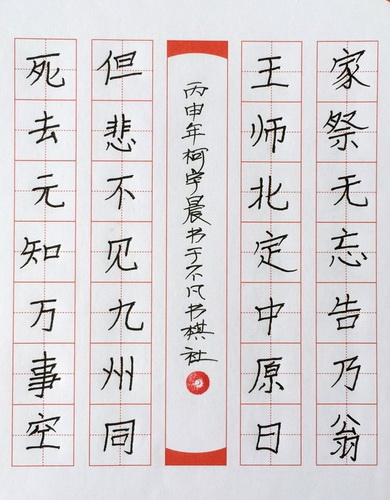 死去元知万事空
但悲不见九州同
丙申年柯宇晨书于不凡书棋社
王师北定中原日
家祭无忘告乃翁